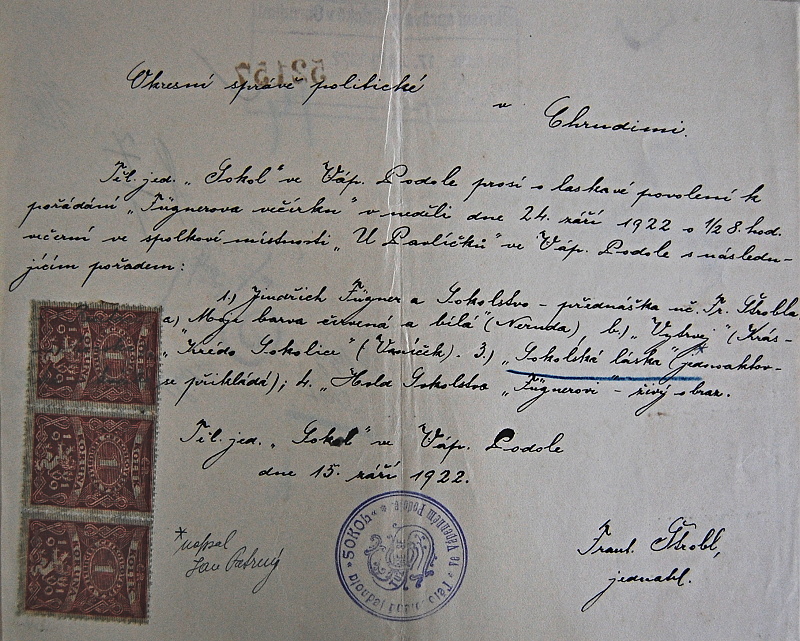 52157
Okresní správě politické
v
Chrudimi.
Těl. jed. „Sokol" ve Váp. Podole prosí o laskavé povolení k
pořádání „Fügnerova večírku" v neděli dne 24. září 1922 o 1/2 8. hod.
večerní ve spolkové místnosti „U Pavlíčků" ve Váp. Podole s následu-
jícím pořadem:
1.) Jindřich Fügner a Sokolstvo – přednáška uč. Fr. Štrobla,
a) Moje barva červená a bílá" (Neruda) b.) „Vytrvej" (Krás-
„Krédo Sokolice" (Vaníček). 3.) „Sokolská láska* (jednoaktov-
se přikládá); 4. „Hold Sokolstva Fügnerovi – živý obraz.
Těl. jed. „Sokol" ve Váp. Podole
dne 15. září 1922.
*napsal
Jan Patrný
Frant. Štrobl,
jednatel.
1 KORUNA
1919
1 KORUNA
1919
1 KORUNA
1919
Tělocvičná jednota „SOKOL" ve Vápenném Podole